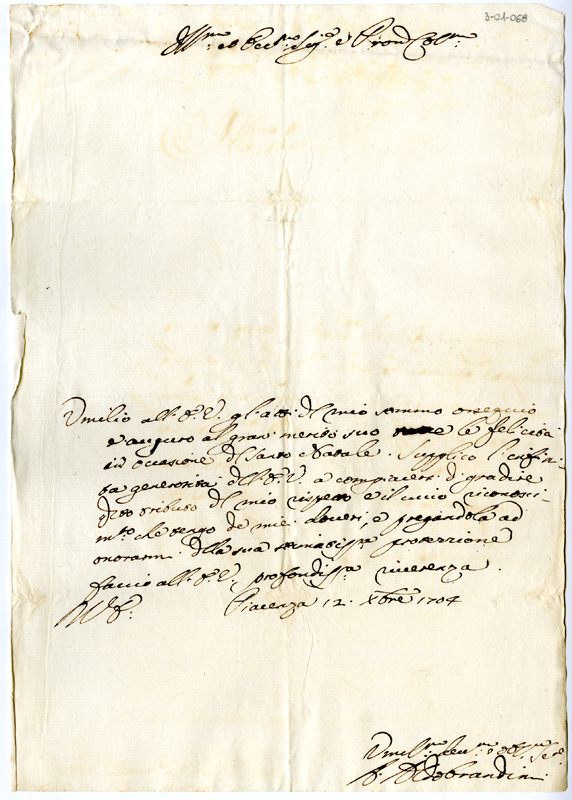 3-01-068
Ill.mo et Ecc.mo Sig.r e P.ron Col.mo
Umilio all' E. V. gl'atti del mio sommo ossequio
e auguro al gran merito suo le felicità
in occasione del Santo Natale. Supplico l'infini-
ta generosità dell' E. V. a compiacersi di gradire
q.to tributo del mio rispetto e il vivo riconosci-
m.to che tengo de miei doveri, e pregandola ad
onorarmi della sua stimatiss.a protezzione
faccio all' E. V. profondiss.a riverenza.
Piacenza 12. Xbre 1704
Umil.mo Dev.mo et Obl.mo Se.re
Aldobrandini